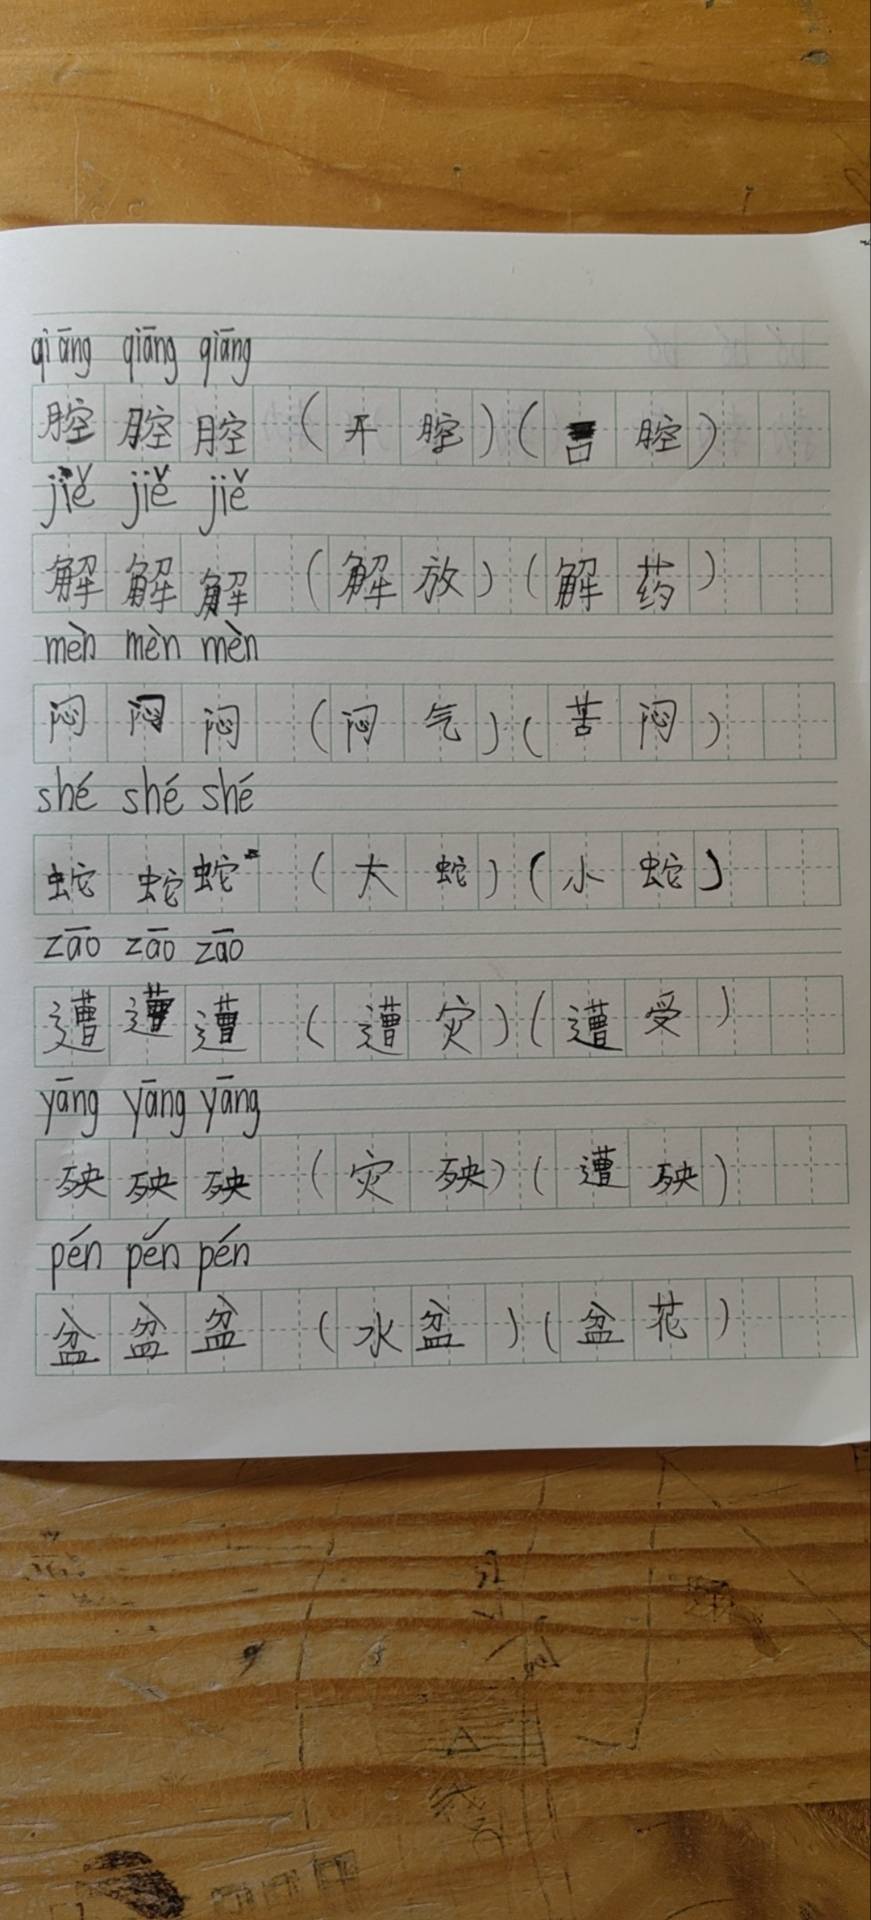 qiāng qiāng qiāng
腔 腔 腔 (开 腔) (言 腔)
jiě jiě jiě
解 解 解 (解 放) (解 药)
mèn mèn mèn
闷 闷 闷 (闷 气) (苦 闷)
shé shé shé
蛇 蛇 蛇 (大 蛇) (小 蛇)
zāo zāo zāo
遭 遭 遭 (遭 灾) (遭 受)
yāng yāng yāng
殃 殃 殃 (灾 殃) (遭 殃)
pén pén pén
盆 盆 盆 (水 盆) (盆 花)